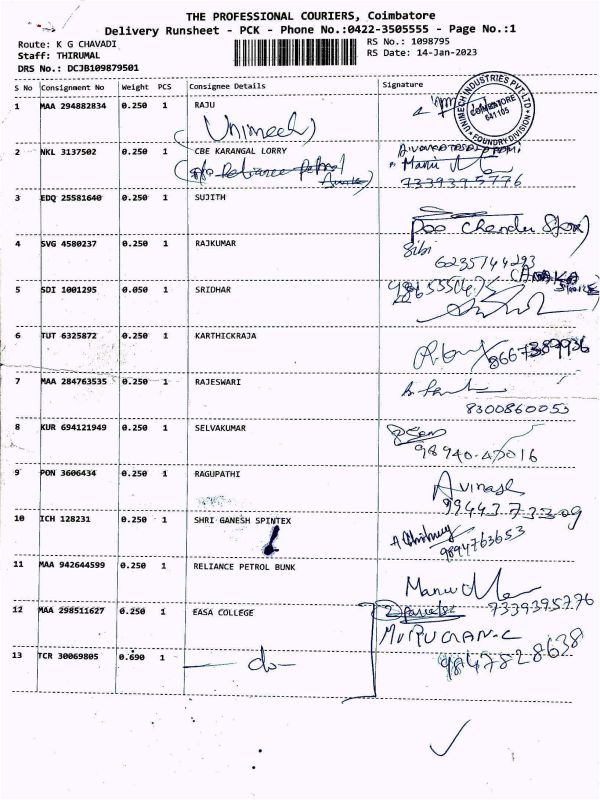 THE PROFESSIONAL COURIERS, Coimbatore
Delivery Runsheet - PCK - Phone No.:0422-3505555 - Page No.:1
Route: K G CHAVADI
RS No.: 1098795
Staff: THIRUMAL
RS Date: 14-Jan-2023
DRS No.: DCJB109879501
S No Consignment No Weight PCS Consignee Details Signature
1 MAA 294882834 0.250 1 RAJU
(Unimech)
UNIMECH INDUSTRIES PVT LTD
COIMBATORE
641105
FOUNDRY DIVISION
2 NKL 3137502 0.250 1 CBE KARANGAL LORRY
Reliance Petrol
Manu
7339395776
3 EDQ 25581640 0.250 1 SUJITH
4 SVG 4580237 0.250 1 RAJKUMAR
Sibi
6235744293
5 SDI 1001295 0.050 1 SRIDHAR
6 TUT 6325872 0.250 1 KARTHICKRAJA
8667389936
7 MAA 284763535 0.250 1 RAJESWARI
8300860053
8 KUR 694121949 0.250 1 SELVAKUMAR
98940-47016
9 PON 3606434 0.250 1 RAGUPATHI
Avinash
9944373309
10 ICH 128231 0.250 1 SHRI GANESH SPINTEX
9894763653
11 MAA 942644599 0.250 1 RELIANCE PETROL BUNK
Manu
7339395776
12 MAA 298511627 0.250 1 EASA COLLEGE
MURUGAN-C
13 TCR 30069805 0.690 1 — do —
9847828638